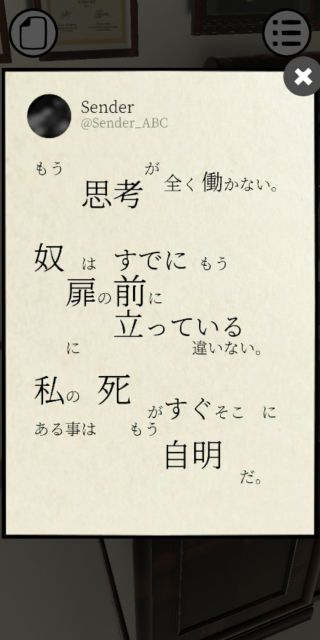 Sender
@Sender_ABC
もう思考が全く働かない。
奴はすでにもう
扉の前に
立っている
に違いない。
私の死がすぐそこに
ある事はもう
自明だ。